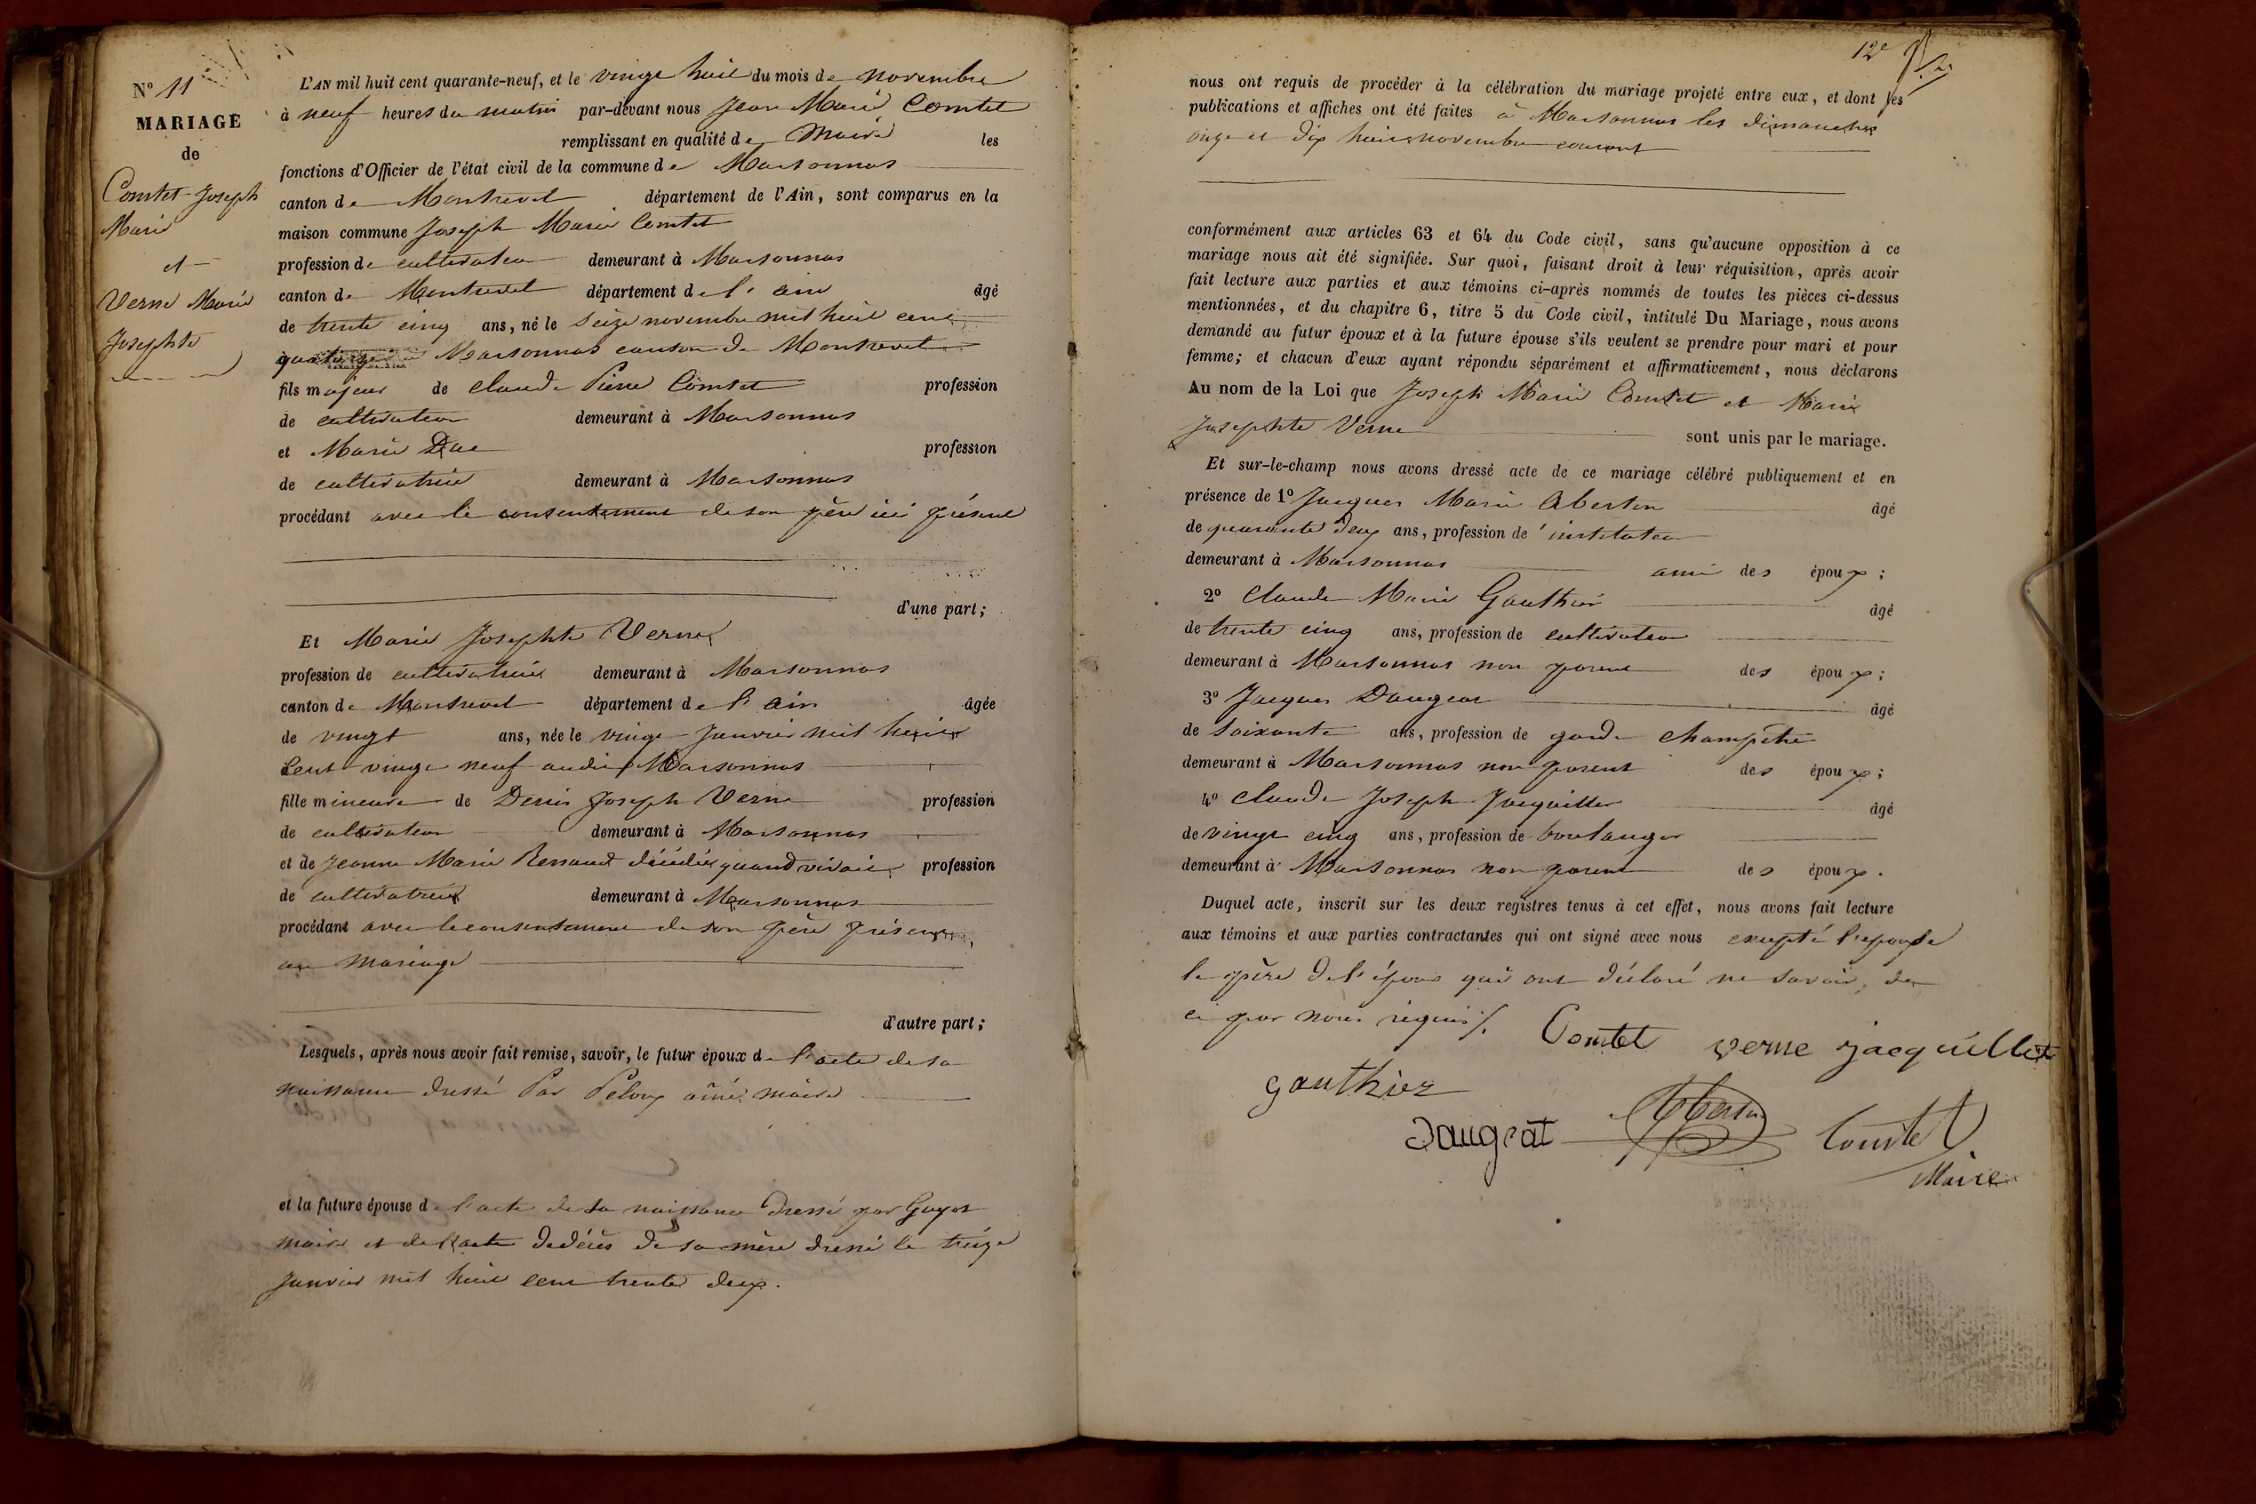 N° 11
MARIAGE
de
Comtet Joseph
Marie
et
Verne Marie
Josephte
L'AN mil huit cent quarante-neuf, et le vingt huit du mois de novembre
à neuf heures du matin par-devant nous Jean Marie Comtet
remplissant en qualité de Maire les
fonctions d'Officier de l'état civil de la commune de Marsonnas
canton de Montrevel département de l'Ain, sont comparus en la
maison commune Joseph Marie Comtet
profession de cultivateur demeurant à Marsonnas
canton de Montrevel département de l'ain âgé
de trente cinq ans, né le Seize novembre mil huit cent
quatorze Marsonnas canton de Montrevel
fils majeur de Claude Pierre Comtet profession
de cultivateur demeurant à Marsonnas
et Marie Duc profession
de cultivatrice demeurant à Marsonnas
procédant avec le consentement de son père ici présent
d'une part;
Et Marie Josephte Verne
profession de cultivatrice demeurant à Marsonnas
canton de Montrevel département de l'ain âgée
de vingt ans, née le vingt Janvier mil huit
Cent vingt neuf audit Marsonnas
fille mineure de Denis Joseph Verne profession
de cultivateur demeurant à Marsonnas
et de Jeanne Marie Renaud décédée quand vivait profession
de cultivatrice demeurant à Marsonnas
procédant avec le consentement de son père présent
au mariage
d'autre part;
Lesquels, après nous avoir fait remise, savoir, le futur époux de l'acte de sa
naissance dressé Par Peloux aîné maire
et la future épouse de l'acte de sa naissance dressé par Guyot
maire et de l'acte de décès de sa mère dressé le treize
Janvier mil huit cent trente deux.
12e
nous ont requis de procéder à la célébration du mariage projeté entre eux, et dont les
publications et affiches ont été faites à Marsonnas les dimanches
onze et dix huit novembre courant
conformément aux articles 63 et 64 du Code civil, sans qu'aucune opposition à ce
mariage nous ait été signifiée. Sur quoi, faisant droit à leur réquisition, après avoir
fait lecture aux parties et aux témoins ci-après nommés de toutes les pièces ci-dessus
mentionnées, et du chapitre 6, titre 5 du Code civil, intitulé Du Mariage, nous avons
demandé au futur époux et à la future épouse s'ils veulent se prendre pour mari et pour
femme; et chacun d'eux ayant répondu séparément et affirmativement, nous déclarons
Au nom de la Loi que Joseph Marie Comtet et Marie
Josephte Verne sont unis par le mariage.
Et sur-le-champ nous avons dressé acte de ce mariage célébré publiquement et en
présence de 1° Jacques Marie Aberton âgé
de quarante deux ans, profession de instituteur
demeurant à Marsonnas ami des époux;
2° Claude Marie Gauthier âgé
de trente cinq ans, profession de cultivateur
demeurant à Marsonnas non parent des époux;
3° Jacques Daugeat âgé
de Soixante ans, profession de garde champêtre
demeurant à Marsonnas non parent des époux;
4° Claude Joseph Jacquillet âgé
de vingt cinq ans, profession de boulanger
demeurant à Marsonnas non parent des époux.
Duquel acte, inscrit sur les deux registres tenus à cet effet, nous avons fait lecture
aux témoins et aux parties contractantes qui ont signé avec nous excepté l'epouse
le père de l'époux qui ont déclaré ne savoir, de
ce par nous requis /.
Comtet Verne Jacquillet
Gauthier
Daugeat Comtet
Maire